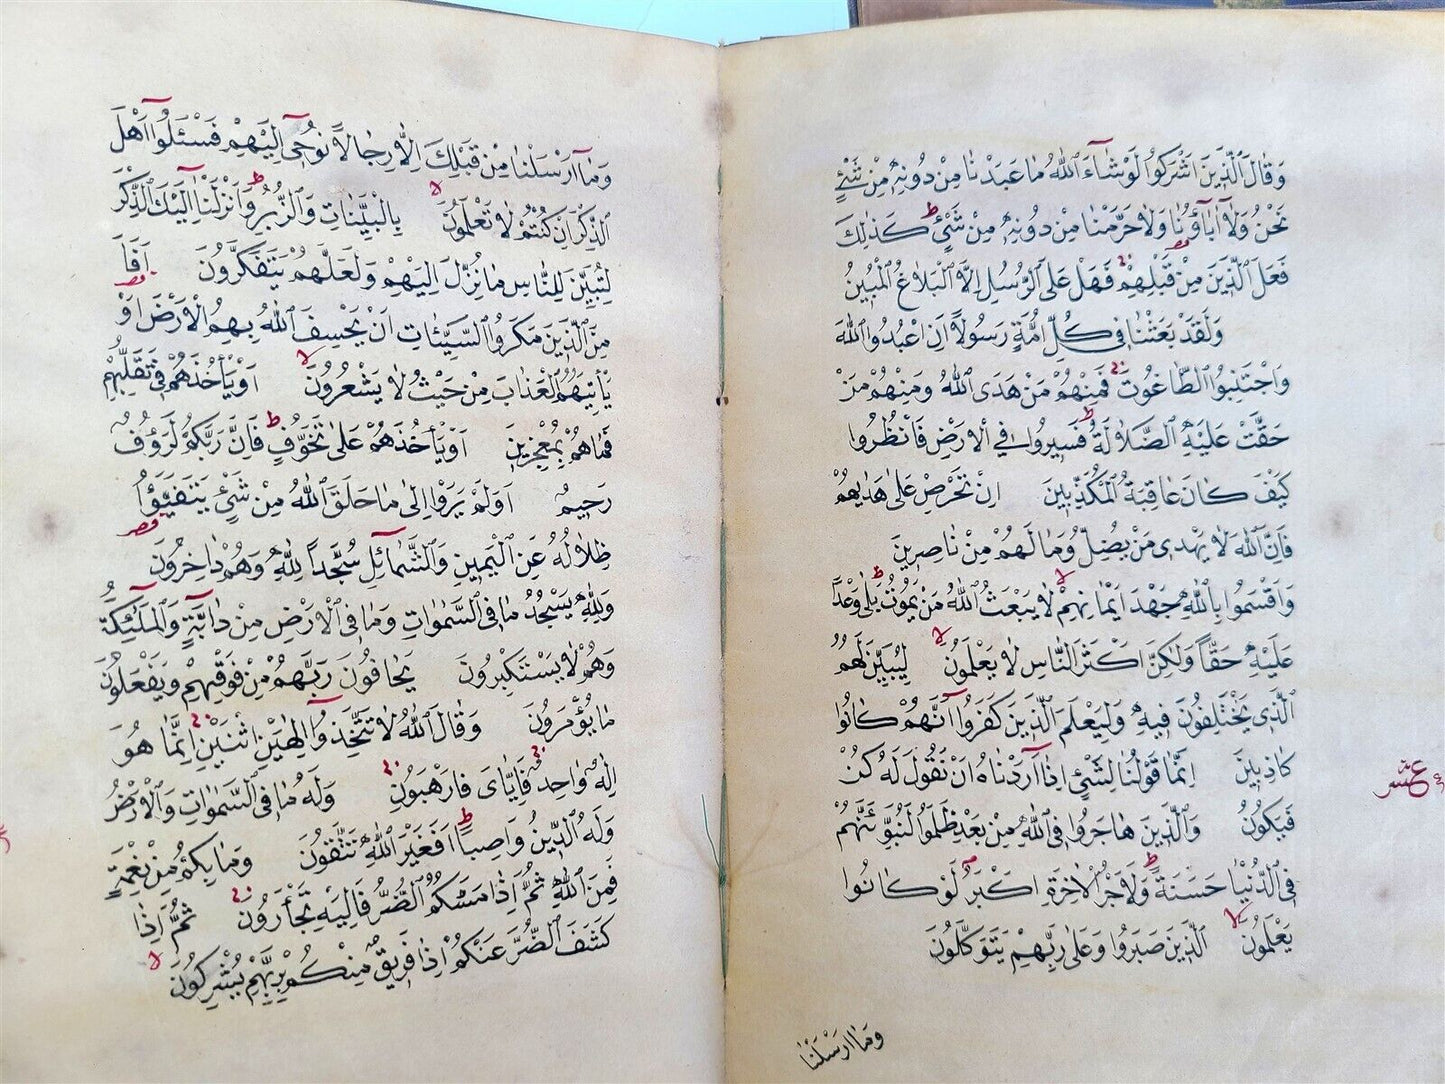 وَقَالَ الَّذِينَ اَشْرَكُوا لَوْ شَآءَ اللّٰهُ مَا عَبَدْنَا مِنْ دُونِهٖ مِنْ شَىْءٍ
نَحْنُ وَلَآ اٰبَآؤُنَا وَلَا حَرَّمْنَا مِنْ دُونِهٖ مِنْ شَىْءٍ ط كَذٰلِكَ
فَعَلَ الَّذِينَ مِنْ قَبْلِهِمْ فَهَلْ عَلَى الرُّسُلِ اِلَّا الْبَلَاغُ الْمُبِينُ
وَلَقَدْ بَعَثْنَا فِى كُلِّ اُمَّةٍ رَسُولاً اَنِ اعْبُدُوا اللّٰهَ
وَاجْتَنِبُوا الطَّاغُوتَ فَمِنْهُمْ مَنْ هَدَى اللّٰهُ وَمِنْهُمْ مَنْ
حَقَّتْ عَلَيْهِ الضَّلَالَةُ ط فَسِيرُوا فِى الْاَرْضِ فَانْظُرُوا
كَيْفَ كَانَ عَاقِبَةُ الْمُكَذِّبِينَ اِنْ تَحْرِصْ عَلٰى هُدٰيهُمْ
فَاِنَّ اللّٰهَ لَا يَهْدِى مَنْ يُضِلُّ وَمَا لَهُمْ مِنْ نَاصِرِينَ
وَاَقْسَمُوا بِاللّٰهِ جَهْدَ اَيْمَانِهِمْ لا لَا يَبْعَثُ اللّٰهُ مَنْ يَمُوتُ ط بَلٰى وَعْداً
عَلَيْهِ حَقّاً وَلٰكِنَّ اَكْثَرَ النَّاسِ لَا يَعْلَمُونَ لا لِيُبَيِّنَ لَهُمُ
الَّذِى يَخْتَلِفُونَ فِيهِ وَلِيَعْلَمَ الَّذِينَ كَفَرُوآ اَنَّهُمْ كَانُوا
كَاذِبِينَ اِنَّمَا قَوْلُنَا لِشَىْءٍ اِذَآ اَرَدْنَاهُ اَنْ نَقُولَ لَهُ كُنْ
فَيَكُونُ وَالَّذِينَ هَاجَرُوا فِى اللّٰهِ مِنْ بَعْدِ مَا ظُلِمُوا لَنُبَوِّئَنَّهُمْ
فِى الدُّنْيَا حَسَنَةً ط وَلَاَجْرُ الْاٰخِرَةِ اَكْبَرُ م لَوْ كَانُوا
يَعْلَمُونَ لا الَّذِينَ صَبَرُوا وَعَلٰى رَبِّهِمْ يَتَوَكَّلُونَ
وَمَا اَرْسَلْنَا
عشر
وَمَآ اَرْسَلْنَا مِنْ قَبْلِكَ اِلَّا رِجَالاً نُوحِىٓ اِلَيْهِمْ فَسْئَلُوآ اَهْلَ
الذِّكْرِ اِنْ كُنْتُمْ لَا تَعْلَمُونَ لا بِالْبَيِّنَاتِ وَالزُّبُرِ ط وَاَنْزَلْنَآ اِلَيْكَ الذِّكْرَ
لِتُبَيِّنَ لِلنَّاسِ مَا نُزِّلَ اِلَيْهِمْ وَلَعَلَّهُمْ يَتَفَكَّرُونَ اَفَاَ
مِنَ الَّذِينَ مَكَرُوا السَّيِّئَاتِ اَنْ يَخْسِفَ اللّٰهُ بِهِمُ الْاَرْضَ اَوْ
يَأْتِيَهُمُ الْعَذَابُ مِنْ حَيْثُ لَا يَشْعُرُونَ لا اَوْ يَأْخُذَهُمْ فِى تَقَلُّبِهِمْ
فَمَا هُمْ بِمُعْجِزِينَ اَوْ يَأْخُذَهُمْ عَلٰى تَخَوُّفٍ ط فَاِنَّ رَبَّكُمْ لَرَؤُفٌ
رَحِيمٌ اَوَلَمْ يَرَوْا اِلٰى مَا خَلَقَ اللّٰهُ مِنْ شَىْءٍ يَتَفَيَّؤُا
ظِلَالُهُ عَنِ الْيَمِينِ وَالشَّمَآئِلِ سُجَّداً لِلّٰهِ وَهُمْ دَاخِرُونَ
وَلِلّٰهِ يَسْجُدُ مَا فِى السَّمٰوَاتِ وَمَا فِى الْاَرْضِ مِنْ دَآبَّةٍ وَالْمَلٰٓئِكَةُ
وَهُمْ لَا يَسْتَكْبِرُونَ يَخَافُونَ رَبَّهُمْ مِنْ فَوْقِهِمْ وَيَفْعَلُونَ
مَا يُؤْمَرُونَ وَقَالَ اللّٰهُ لَا تَتَّخِذُوآ اِلٰهَيْنِ اثْنَيْنِ اِنَّمَا هُوَ
اِلٰهٌ وَاحِدٌ فَاِيَّاىَ فَارْهَبُونِ وَلَهُ مَا فِى السَّمٰوَاتِ وَالْاَرْضِ
وَلَهُ الدِّينُ وَاصِباً ط اَفَغَيْرَ اللّٰهِ تَتَّقُونَ وَمَا بِكُمْ مِنْ نِعْمَةٍ
فَمِنَ اللّٰهِ ثُمَّ اِذَا مَسَّكُمُ الضُّرُّ فَاِلَيْهِ تَجْأَرُونَ ثُمَّ اِذَا
كَشَفَ الضُّرَّ عَنْكُمْ اِذَا فَرِيقٌ مِنْكُمْ بِرَبِّهِمْ يُشْرِكُونَ لا